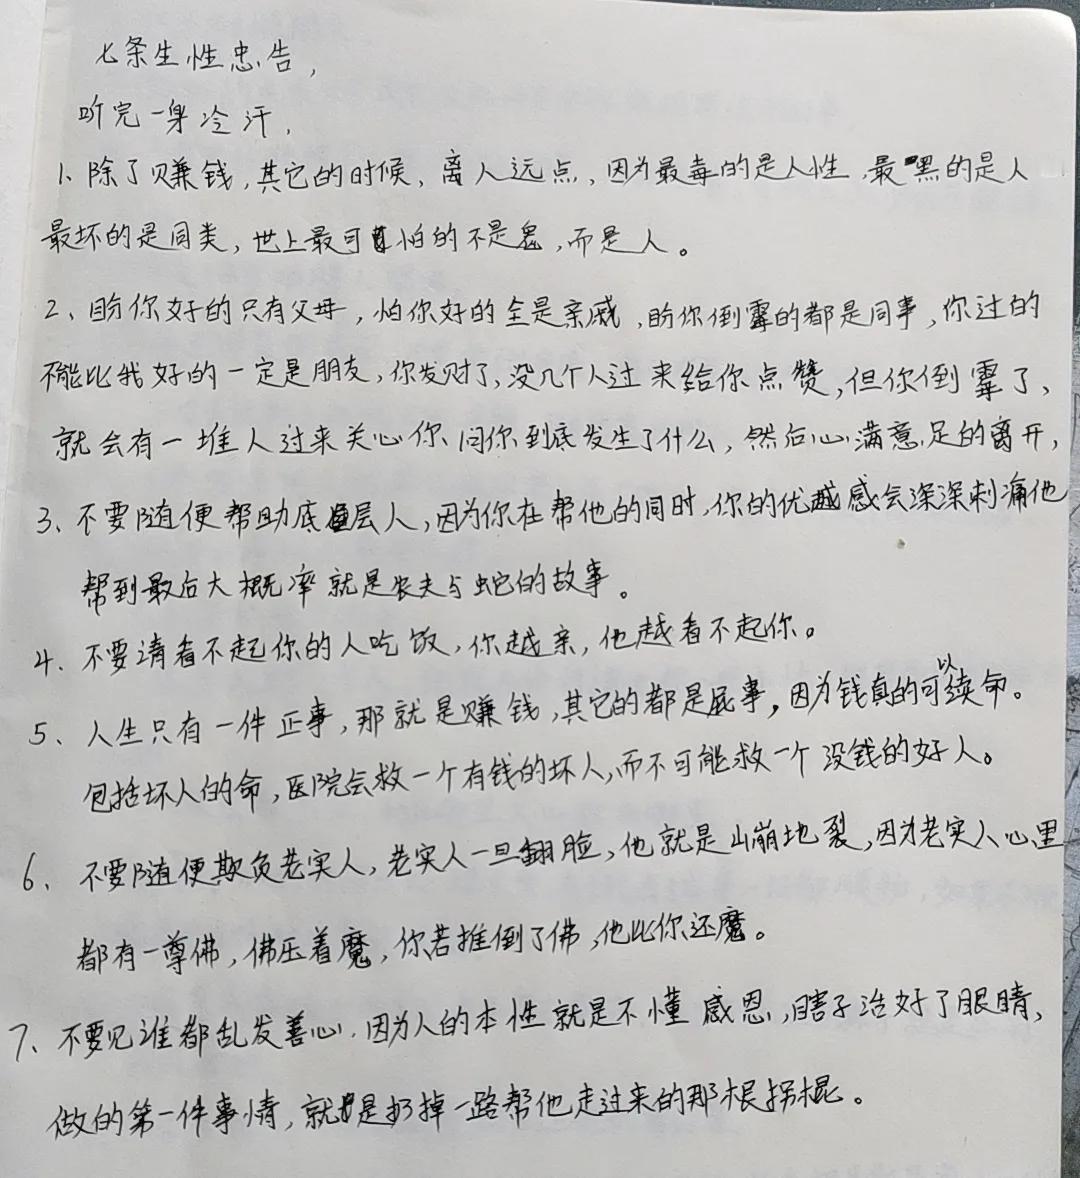 七条生性忠告,
听完一身冷汗,
1、除了赚钱,其它的时候、离人远点、因为最毒的是人性,最黑的是人
最坏的是同类,世上最可怕的不是鬼,而是人。
2、盼你好的只有父母,怕你好的全是亲戚,盼你倒霉的都是同事,你过的
不能比我好的一定是朋友,你发财了,没几个人过来给你点赞,但你倒霉了,
就会有一堆人过来关心你、问你到底发生了什么,然后心满意足的离开,
3、不要随便帮助底层人,因为你在帮他的同时,你的优越感会深深刺痛他
帮到最后大概率就是农夫与蛇的故事。
4、不要请看不起你的人吃饭,你越亲,他越看不起你。
5、人生只有一件正事,那就是赚钱,其它的都是屁事,因为钱真的可以续命。
包括坏人的命,医院会救一个有钱的坏人,而不可能救一个没钱的好人。
6、不要随便欺负老实人,老实人一旦翻脸,他就是山崩地裂,因为老实人心里
都有一尊佛,佛压着魔,你若推倒了佛,他比你还魔。
7、不要见谁都乱发善心,因为人的本性就是不懂感恩,瞎子治好了眼睛,
做的第一件事情,就是扔掉一路帮他走过来的那根拐棍。